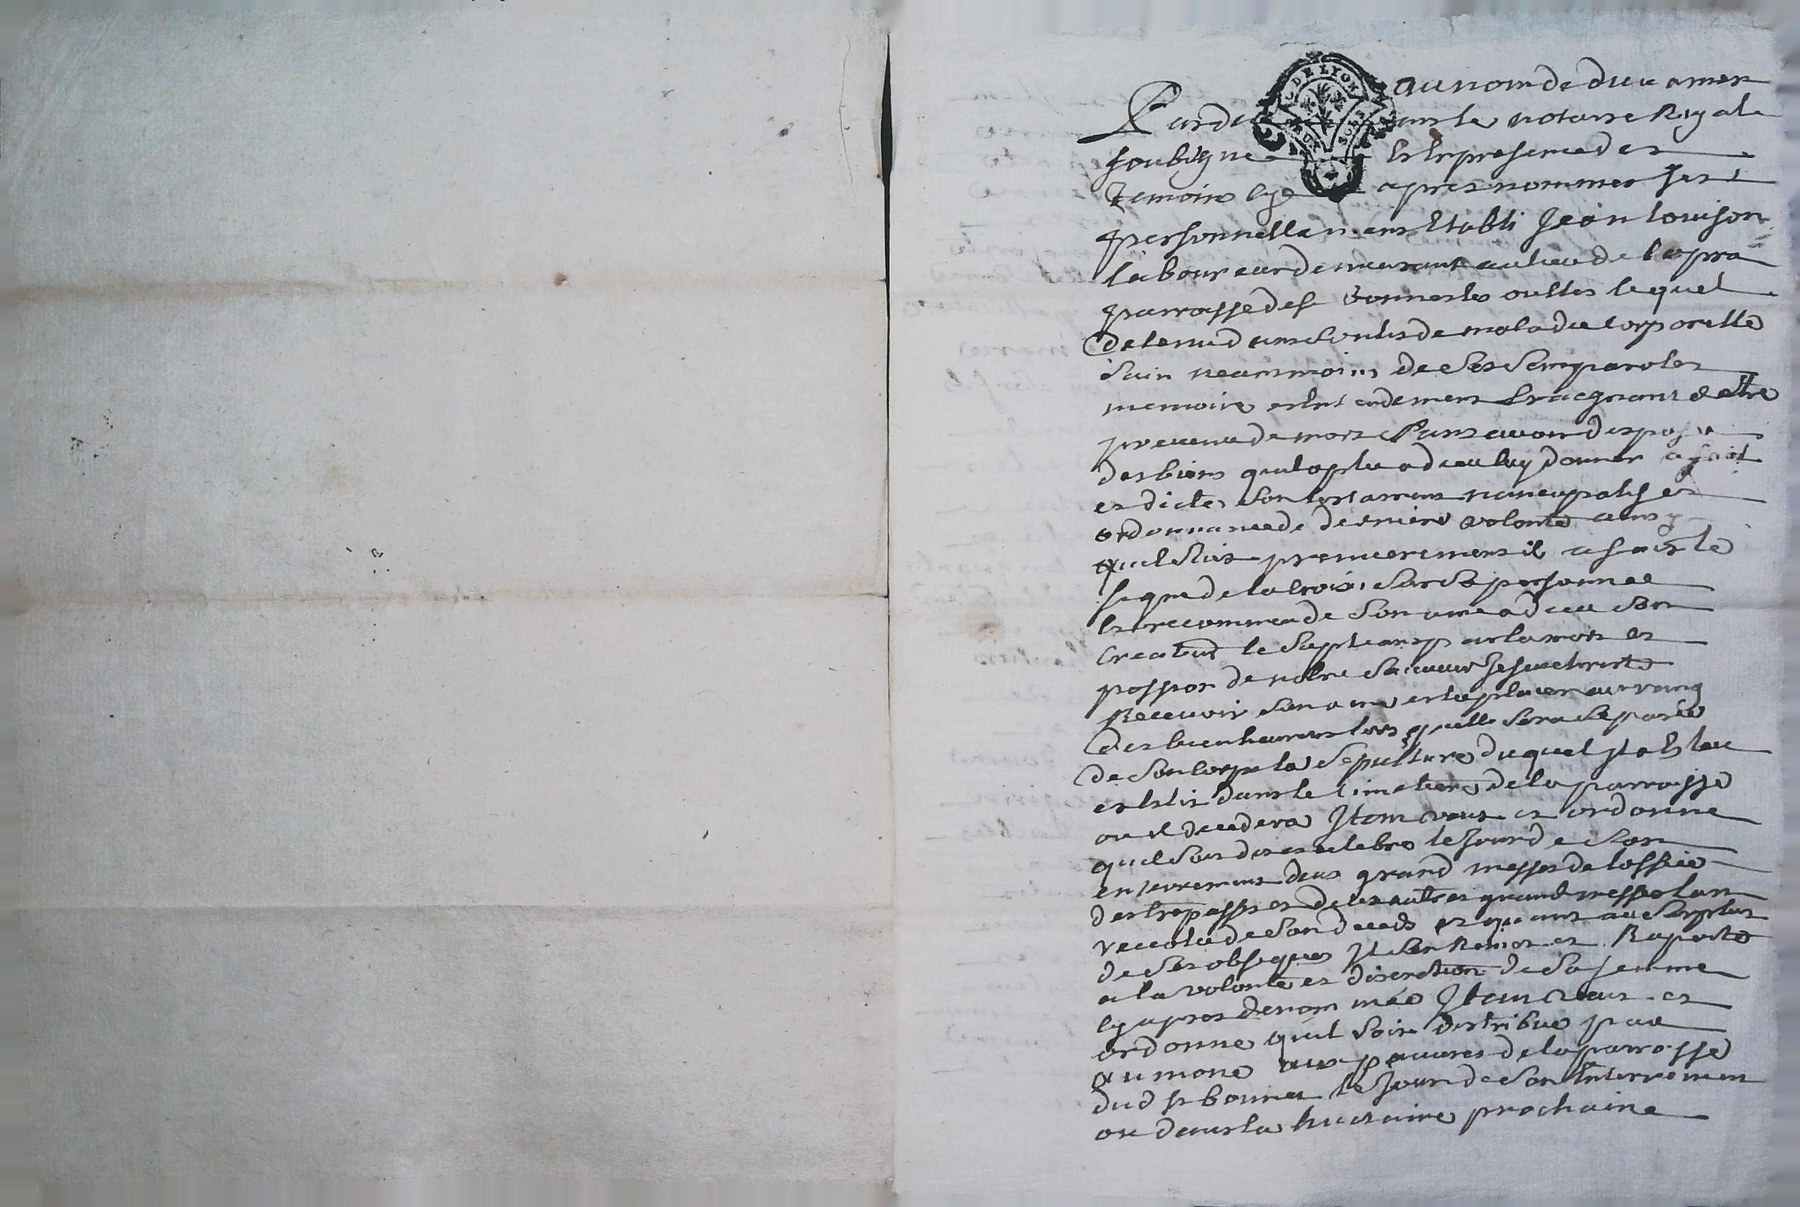 G. DE LYON
DEUX SOLS
au nom de dieu amen
Pard le notaire Royale
soubsigne Et En presence des
temoins cy apres nommes fest
personnellement Etabli Jean louison
laboureur demeurant au lieu de lapra
parroisse de st bonnet les oulles lequel
detenu dans son lit de maladie corporelle
sain neanmoins de ses sens paroles
memoire et Entendement Craegnant destre
prevenu de mort sans avoir dispose
des biens quil a plu a dieu luy donner a fait
et dicte son testament nuncupatif et
ordonnance de derniere volonte ainsy
quil suit premierement il a fait le
signe de la croix sur sa personne
Et recommende son ame a dieu son
Createur le supliant par la mort et
passion de notre sauveur Jesus christ
Recevoir son ame et la placer au rang
des bienheureux lors quelle sera separée
de son corps la sepulture duquel Jl a Esleu
et Eslit dans le cimetiere de la parroisse
ou il decedera Jtem veut et ordonne
quil soit dit et celebre le Jour de son
enterrement deux grand messes de loffice
des trepasses et deux autres grand messes lan
revolu de son deceds et quant au surplus
de ses obseques Jl sen Remet et Raporte
a la volonte et discretion de sa femme
cy apres denommée Jtem veut et
ordonne quil soit distribue par
aumone aux pauvres de la parroisse
dud st bonnet le Jour de son Enterrement
ou dans la huitaine prochaine